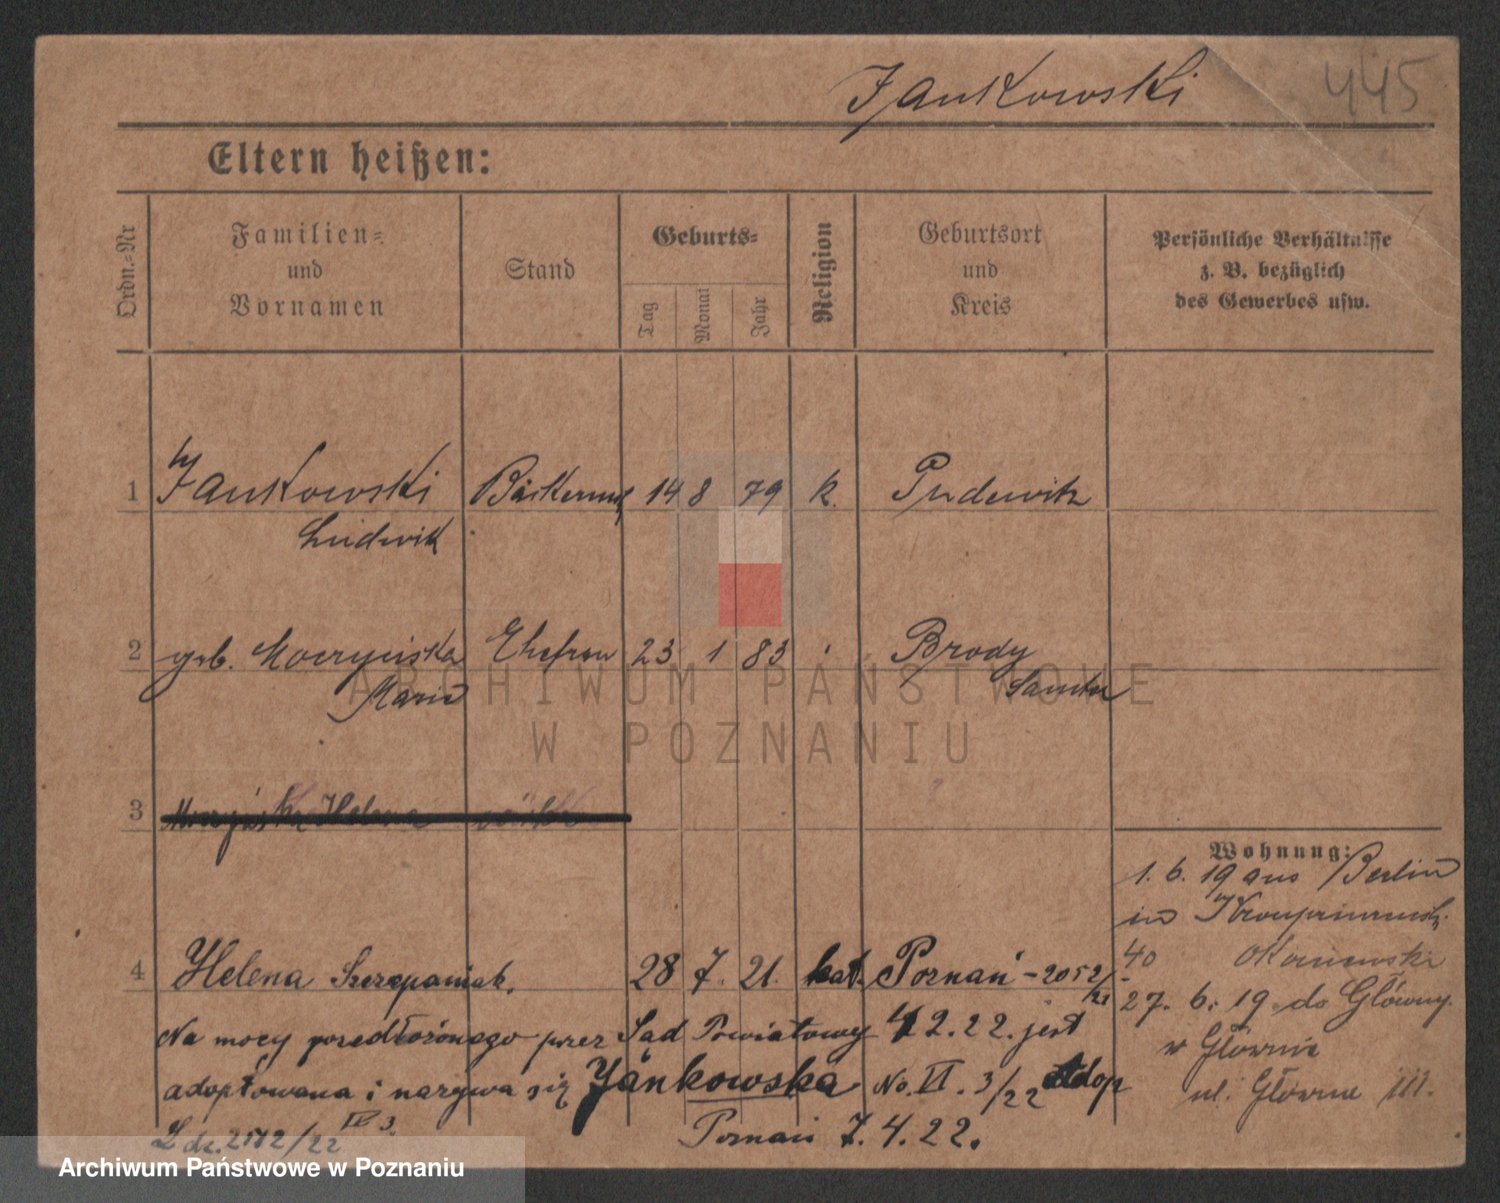 Jankowski 445
Eltern heißen:
Ordn.-Nr
Familien-
und
Vornamen
Stand
Geburts-
Tag
Monat
Jahr
Religion
Geburtsort
und
Kreis
Persönliche Verhältnisse
z. B. bezüglich
des Gewerbes usw.
1 Jankowski 14 8 79 k. Pudewitz
Ludwik
2 geb. Ehefrau 23 1 83 Brody
Maria Samter
3 Helena
Wohnung:
1. 6. 19 aus Berlin
in
40
4 Helena Szczepaniak. 28 7. 21. kat. Poznań - 2052/21
27. 6. 19 do Główny
Na mocy przedłożonego przez Sąd Powiatowy 2. 22. jest
w Głównie
adoptowana i nazywa się Jankowska No. VI. 3/22 adop
ul. Główna 111.
L dz. 2172/22 IV 3. Poznań 7. 4. 22.
ARCHIWUM PAŃSTWOWE
W POZNANIU
Archiwum Państwowe w Poznaniu